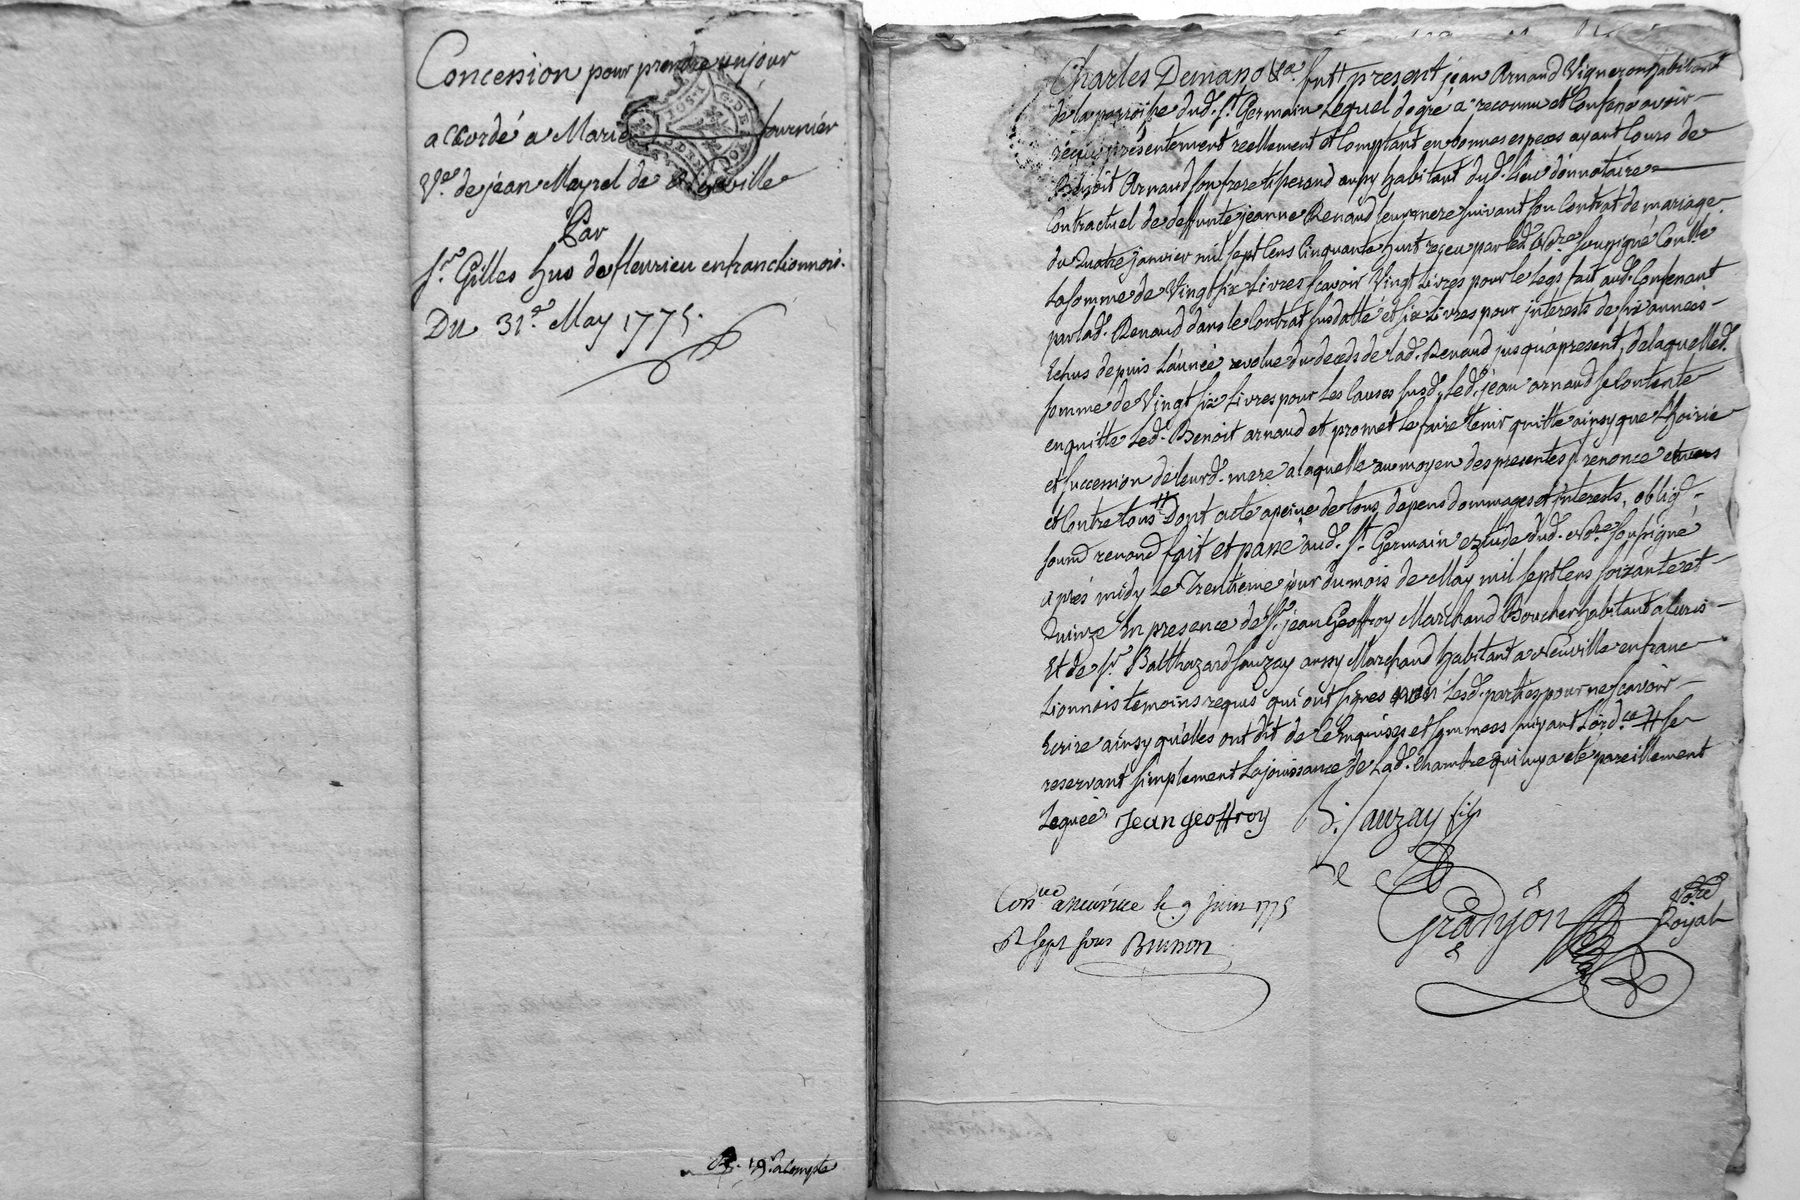 Concession pour prendre un jour
accordé a Marie fournier
Ve. de jean Meyrel de Neuville
Par
Sr. Gilles hus de fleurieu en franclionnois.
Du 31e. May 1775.
19s acompte
Charles Demano fut présent jean Arnaud Vigneron habitant
de la paroisse dud. St. Germain Lequel de gré a reconnu et Confessé avoir
reçu présentement reellement et Comptant en bonnes especes ayant Cours de
Benoit Arnaud son frere aussy habitant dud. lieu donnataire
Contractuel de deffunte jeanne Renaud leur mere suivant son Contrat de mariage
du quatre janvier mil sept Cens Cinquante huit reçeu par led. Nore. soussigné
La somme de Vingt six Livres scavoir Vingt Livres pour le legs fait aud. Confessant
par lad. Renaud dans le Contrat susdatté et six Livres pour interests de six années
Echus depuis L'année revolue du deceds de lad. Renaud jusqu'a present, de laquelled.
somme de Vingt six Livres pour les Causes susd. Led. jean arnaud se Contente
en quitte Led. Benoit arnaud et promet le faire tenir quitte ainsy que L'hoirie
et succession de leurd. mere a laquelle au moyen des presentes il renonce envers
et Contre tous # Dont acte a peine de tous depens dommages et interests, oblig.
soum renond fait et passé aud. St. Germain etude dud. Nore. soussigné
après midy Le Trentième jour du mois de May mil sept Cens soixante et
quinze En presence de Sr. jean Geoffroy Marchand Boucher habitant a Curis
Et de Sr. Balthazard Sauzay aussy Marchand habitant a Neuville en franc
Lionnois temoins requis qui ont signés non Lesd. parties pour ne scavoir
Ecrire ainsy qu'elles ont dit de ce enquises et sommées suivant L'ordce. # se
reservant simplement La jouissance de Lad. Chambre qui luy a eté pareillement
Leguée Jean geoffroy B. Sauzay fils
Granjon Nore. Royal
Conlee a neuville le 9 juin 1775
R sept sous Brunon